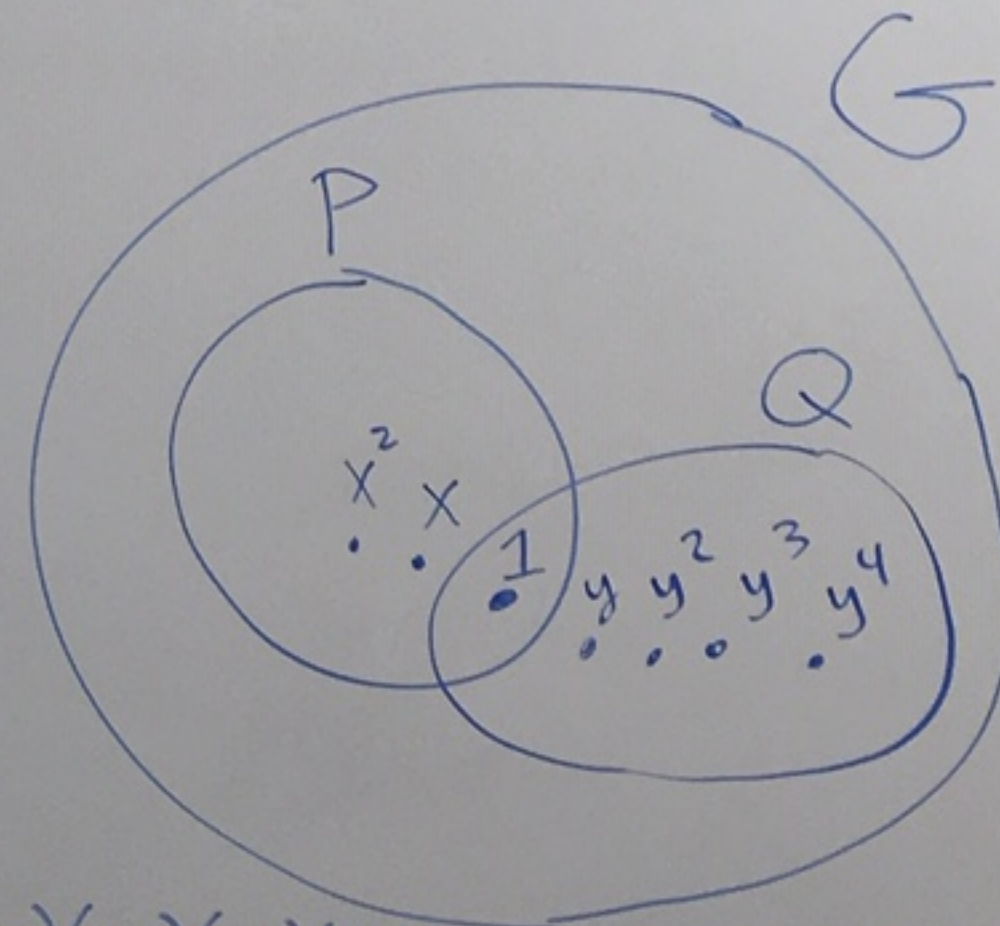 G
P
Q
x² x
1 y y² y³ y⁴